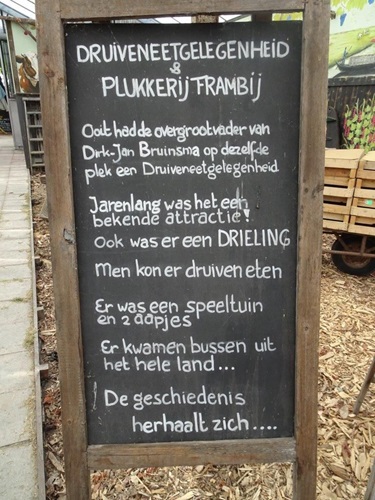 DRUIVENEETGELEGENHEID
&
PLUKKERIJ FRAMBIJ
Ooit had de overgrootvader van
Dirk-Jan Bruinsma op dezelfde
plek een Druiveneetgelegenheid
Jarenlang was het een
bekende attractie!
Ook was er een DRIELING
Men kon er druiven eten
Er was een speeltuin
en 2 aapjes
Er kwamen bussen uit
het hele land...
! De geschiedenis
herhaalt zich....